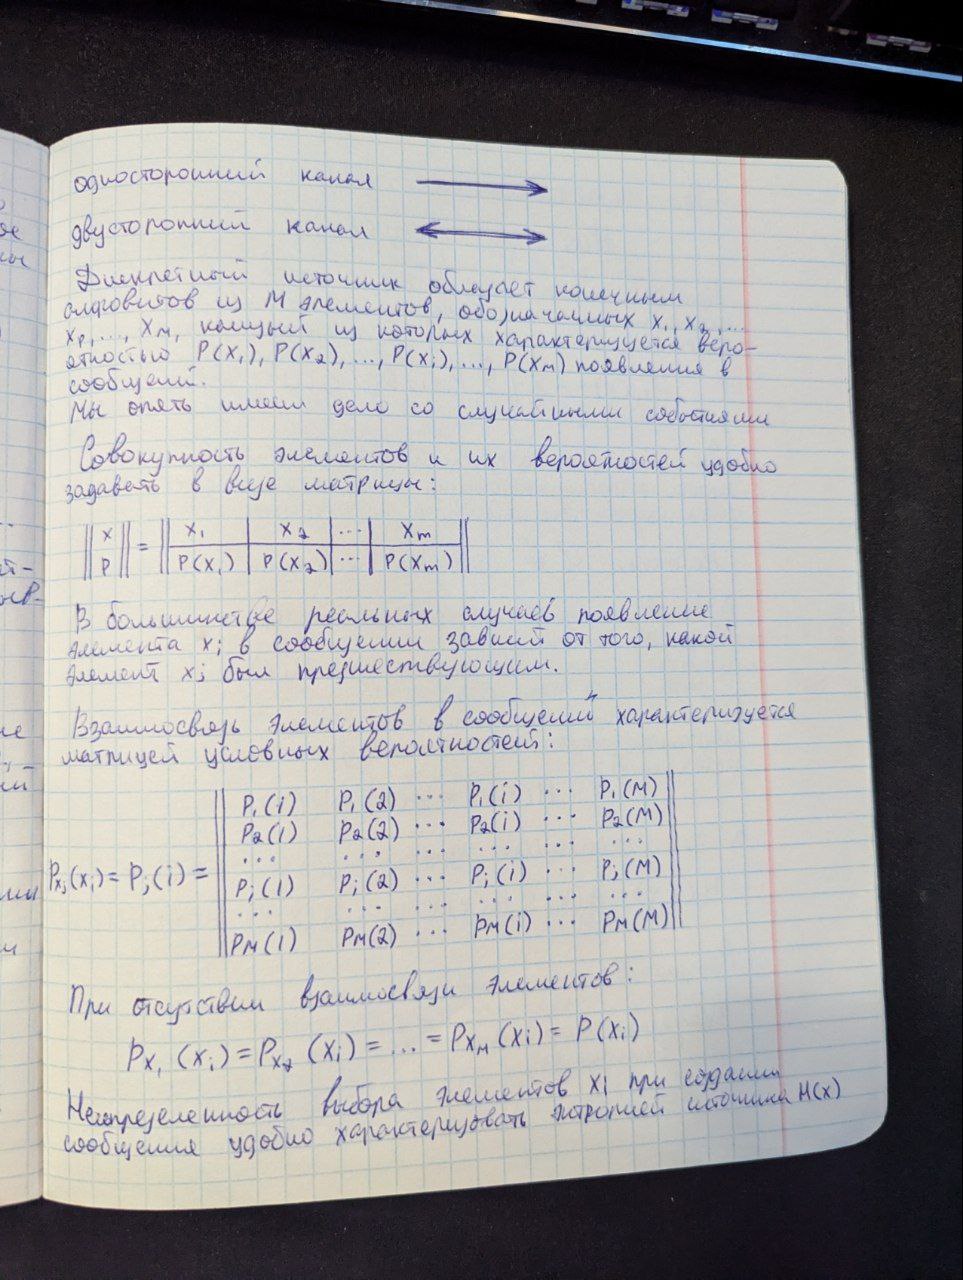 односторонний канал
двусторонний канал
Дискретный источник обладает конечным
алфовитов из М элементов, обозначанных x₁, x₂, ...
xₚ, ..., xₘ, каждый из которых характеризуется веро-
ятностью P(x₁), P(x₂), ..., P(xᵢ), ..., P(xₘ) появления в
сообщений.
Мы опять имеем дело со случайными событиями
Совокупность элементов и их вероятностей удобно
задавать в виде матрицы:
‖ x ‖ = ‖ x₁ | x₂ | ... | xₘ ‖
‖ P ‖ ‖ P(x₁) | P(x₂) | ... | P(xₘ) ‖
В большинстве реальных случаев появление
элемента xᵢ в сообщении зависит от того, какой
элемент xⱼ был предшествующим.
Взаимосвязь элементов в сообщений характеризуется
матрицей условных вероятностей:
P₁(1) P₁(2) ... P₁(i) ... P₁(M)
P₂(1) P₂(2) ... P₂(i) ... P₂(M)
... ... ... ... ...
Pxⱼ(xᵢ) = Pⱼ(i) = Pⱼ(1) Pⱼ(2) ... Pⱼ(i) ... Pⱼ(M)
... ... ... ... ...
Pₘ(1) Pₘ(2) ... Pₘ(i) ... Pₘ(M)
При отсутствии взаимосвязи элементов:
Px₁(xᵢ) = Px₂(xᵢ) = ... = Pxₘ(xᵢ) = P(xᵢ)
Неопределенность выбора элементов xᵢ при создании
сообщения удобно характеризовать энтропией источника H(x)